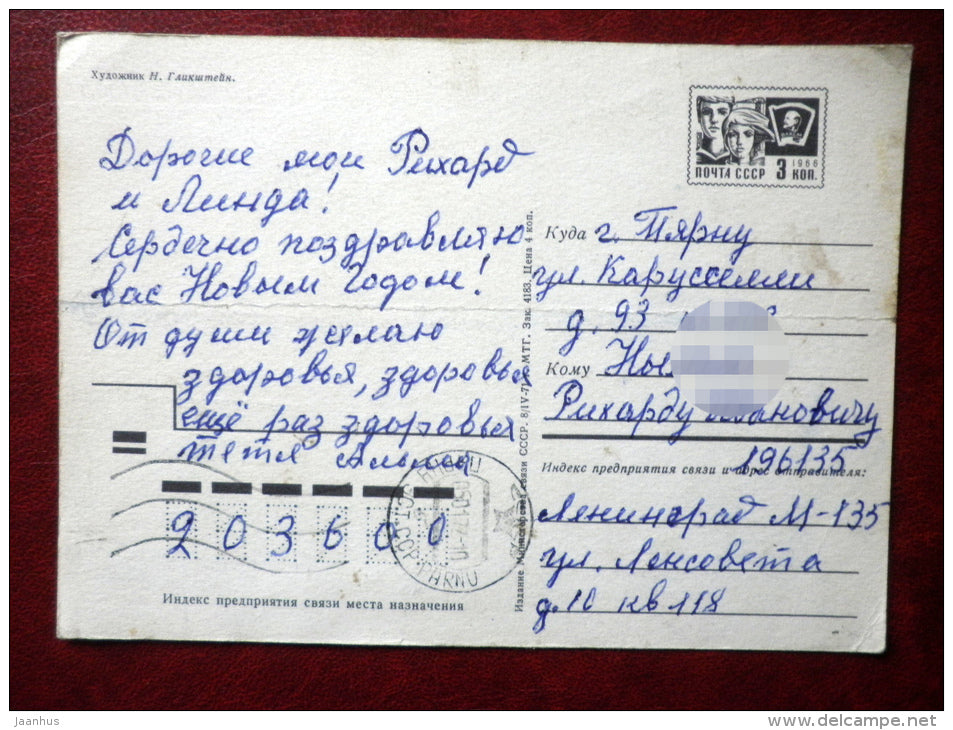 Художник Н. Гликштейн.
Дорогие мои Рихард
и Линда!
Сердечно поздравляю
вас Новым Годом!
От души желаю
здоровья, здоровья
ещё раз здоровья
тетя Альма
203600
Индекс предприятия связи места назначения
Издание Министерства связи СССР. 8/IV-71 г. МТГ. Зак. 4183. Цена 4 коп.
ПОЧТА СССР 3 КОП.
1966
Куда г. Пярну
ул. Карусселли
д. 93
Кому Ны
Рихарду Ивановичу
196135
Индекс предприятия связи и адрес отправителя:
Ленинград М-135
ул. Ленсовета
д. 10 кв 118
PÄRNU
jaanhus
www.delcampe.net